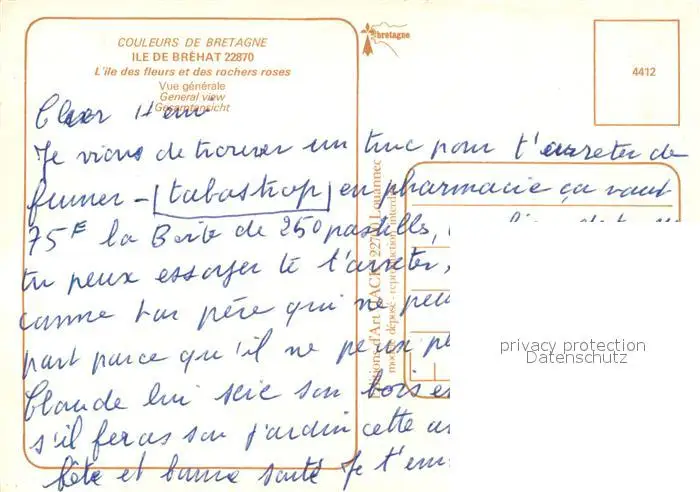 COULEURS DE BRETAGNE
ILE DE BRÉHAT 22870
L'île des fleurs et des rochers roses
Vue générale
General view
Gesamtansicht
bretagne
4412
Cher Henri
Je viens de trouver un truc pour t'arreter de
fumer - tabastop en pharmacie ça vaut
75F la Boite de 250 pastills,
tu peux essayer te t'arreter,
comme ton père qui ne peu
part parce qu'il ne peux pe
Claude lui scie son bois es
s'il feras son jardin cette an
fête et bonne santé Je t'em
Editions d'Art JACK 22700 Louannec
modèle déposé - reproduction interdite
privacy protection
Datenschutz